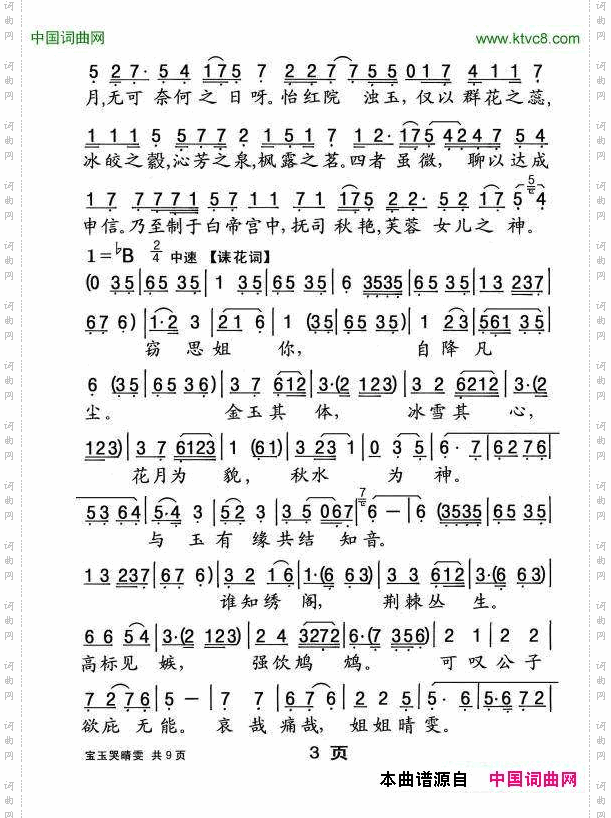 中国词曲网 www.ktvc8.com
5 2 7· 5 4 1 7 5 7 2 2 7 7 5 5 0 1 7 4 1 1 7
月,无可奈何之日呀。怡红院 浊玉,仅以群花之蕊,
1 1 1 5 5 7 7 2 1 7 7 1 2· 1 7 5 4 2 4 7 5 4
冰皎之縠,沁芳之泉,枫露之茗。四者虽微,聊以达成
申信。乃至制于白帝宫中,抚司秋艳,芙蓉女儿之神。
1=♭B 2/4 中速 【诔花词】
(0 3 5 | 6 5 3 5 | 6 5 3 5 | 6 3535 | 6 5 3 5 | 6 5 3 5 | 1 3 237 |
6 7 6) | 1·2 3 | 2 1 6 | 1 (3 5 | 6 5 3 5 | 6 5 3 5) | 1 2 3 | 561 3 5 |
窃思姐 你, 自降凡
6 (3 5 | 6 5 3 6) | 3 7 6 1 2 | 3·(2 1 2 3) | 3 2 6212 | 3·(2
尘。 金玉其 体, 冰雪其 心,
1 2 3) | 3 7 6123 | 1 (6 1) | 3 2 3 1 | 0 3 5 | 6· 7 | 6 2 7 6 |
花月为 貌, 秋水 为 神。
5 3 6 4 | 5·4 3 | 5 2 3 | 3 5 0 6 7 | 6 — | 6 (3535 | 6 5 3 5 |
与 玉有 缘共结 知音。
1 3 237 | 6 7 6) | 3 2 1 6 | 1·(6 6 3) | 3 3 6 1 2 | 3·(6 6 3) |
谁知绣 阁, 荆棘丛 生。
6 6 5 4 | 3·(2 1 2 3) | 2 4 3272 | 6·(7 3 5 6) | 2 1 | 2 2 |
高标见 嫉, 强饮鸠 鸩。 可叹公子
7 2 7 6 | 5 — | 7 7 | 6 7 6 | 2 2 5 | 6 5 2 | 5·6 7 2 |
欲庇无能。 哀哉痛哉, 姐姐晴雯。
宝玉哭晴雯 共9页
3 页
本曲谱源自 中国词曲网
词曲网